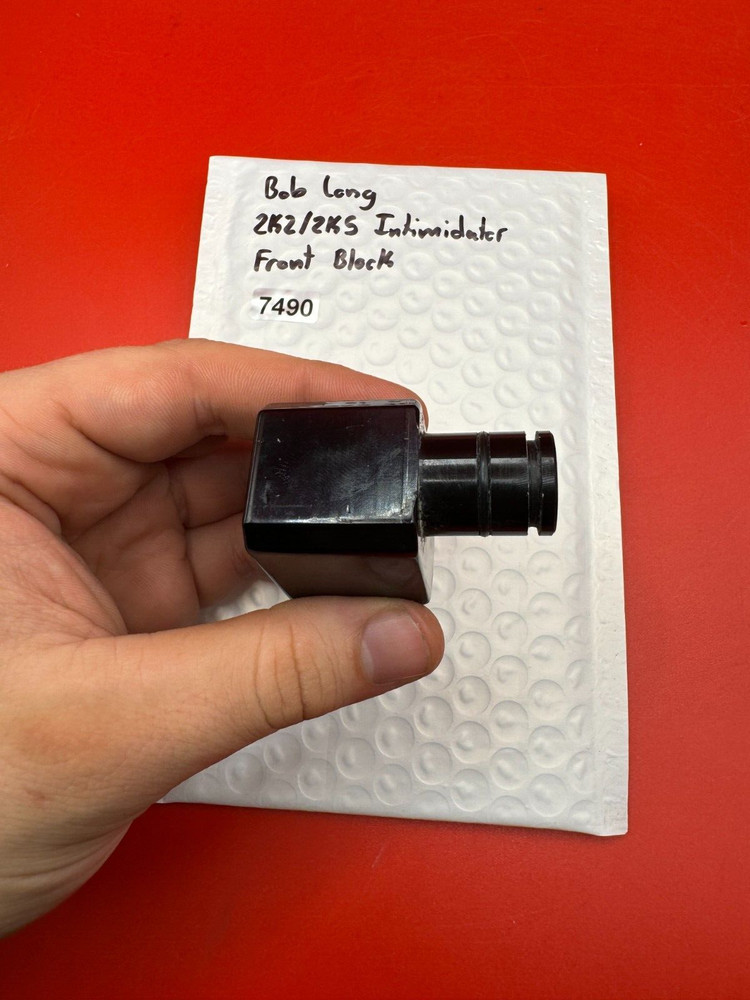 Bob Long
2K2/2K5 Intimidator
Front Block
7490